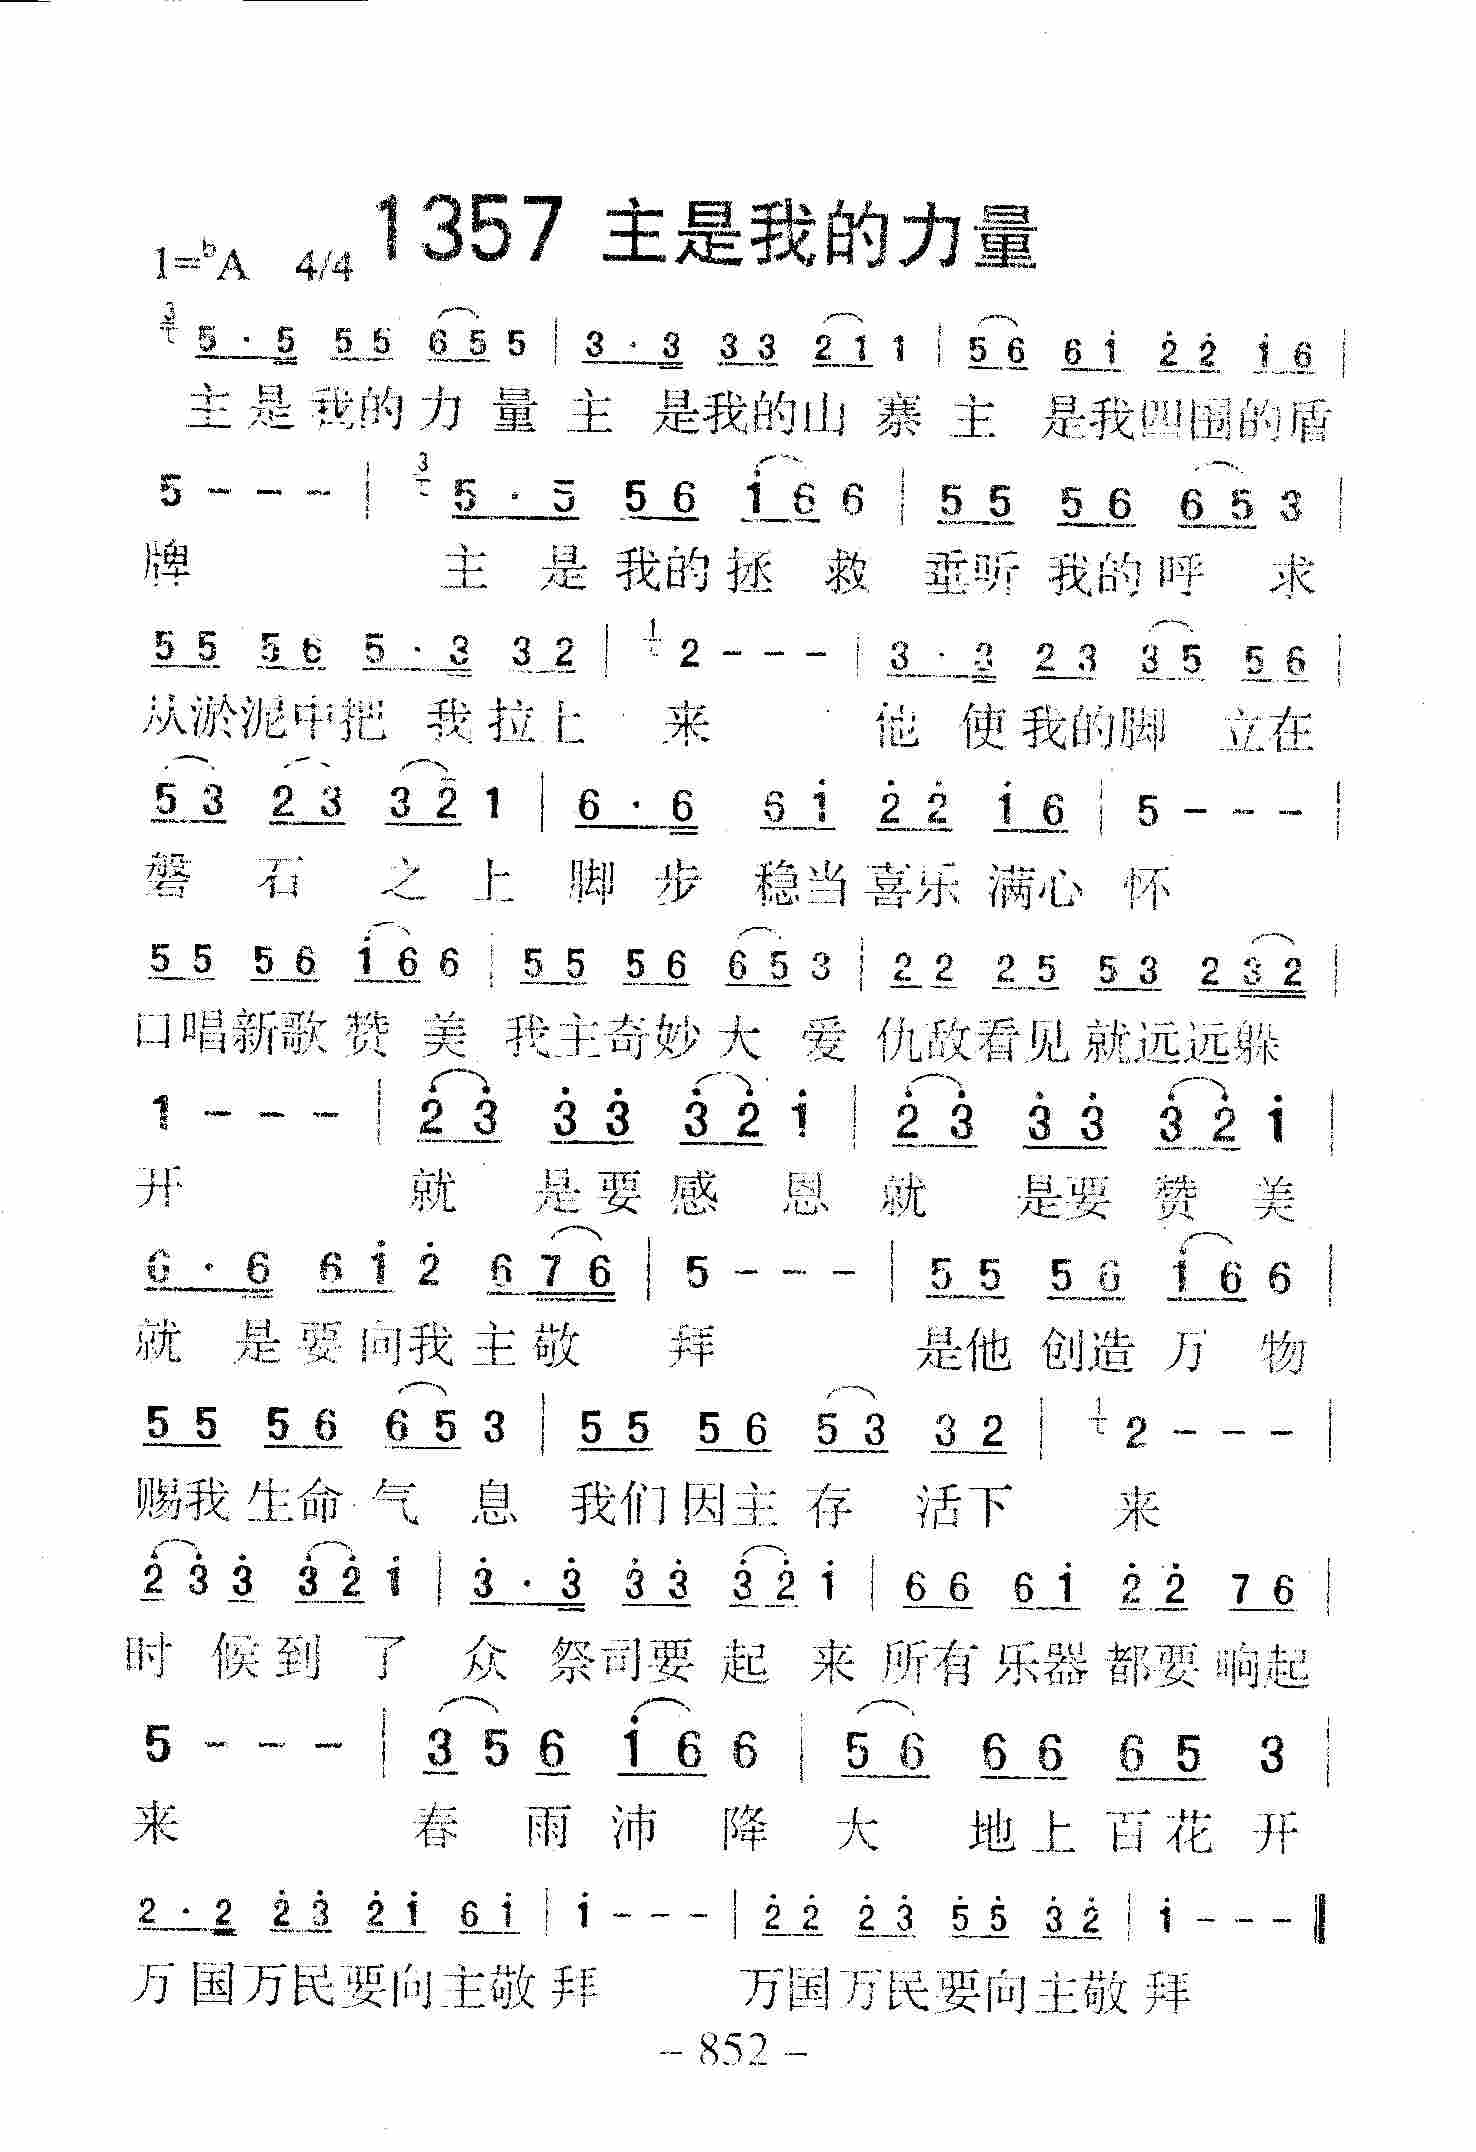 1357 主是我的力量
1=ᵇA 4/4
5 · 5 5 5 6 5 5 | 3 · 3 3 3 2 1 1 | 5 6 6 1̇ 2̇ 2̇ 1̇ 6 |
主是我的力量主是我的山寨主是我四围的盾
5 - - - | 5 · 5 5 6 1̇ 6 6 | 5 5 5 6 6 5 3 |
牌 主是我的拯救垂听我的呼求
5 5 5 6 5 · 3 3 2 | 2 - - - | 3 · 3 2 3 3 5 5 6 |
从淤泥中把我拉上来 他使我的脚立在
5 3 2 3 3 2 1 | 6 · 6 6 1̇ 2̇ 2̇ 1̇ 6 | 5 - - - |
磐石之上脚步稳当喜乐满心怀
5 5 5 6 1̇ 6 6 | 5 5 5 6 6 5 3 | 2 2 2 5 5 3 2 3 2 |
口唱新歌赞美我主奇妙大爱仇敌看见就远远躲
1 - - - | 2̇ 3̇ 3̇ 3̇ 3̇ 2̇ 1̇ | 2̇ 3̇ 3̇ 3̇ 3̇ 2̇ 1̇ |
开 就是要感恩就是要赞美
6 · 6 6 1̇ 2̇ 6 7 6 | 5 - - - | 5 5 5 6 1̇ 6 6 |
就是要向我主敬拜 是他创造万物
5 5 5 6 6 5 3 | 5 5 5 6 5 3 3 2 | 2 - - - |
赐我生命气息我们因主存活下来
2̇ 3̇ 3̇ 3̇ 2̇ 1̇ | 3̇ · 3̇ 3̇ 3̇ 3̇ 2̇ 1̇ | 6 6 6 1̇ 2̇ 2̇ 7 6 |
时候到了众祭司要起来所有乐器都要响起
5 - - - | 3 5 6 1̇ 6 6 | 5 6 6 6 6 5 3 |
来 春雨沛降大地上百花开
2 · 2 2̇ 3̇ 2̇ 1̇ 6 1̇ | 1̇ - - - | 2̇ 2̇ 2̇ 3̇ 5̇ 5̇ 3̇ 2̇ | 1̇ - - - ‖
万国万民要向主敬拜 万国万民要向主敬拜
- 852 -